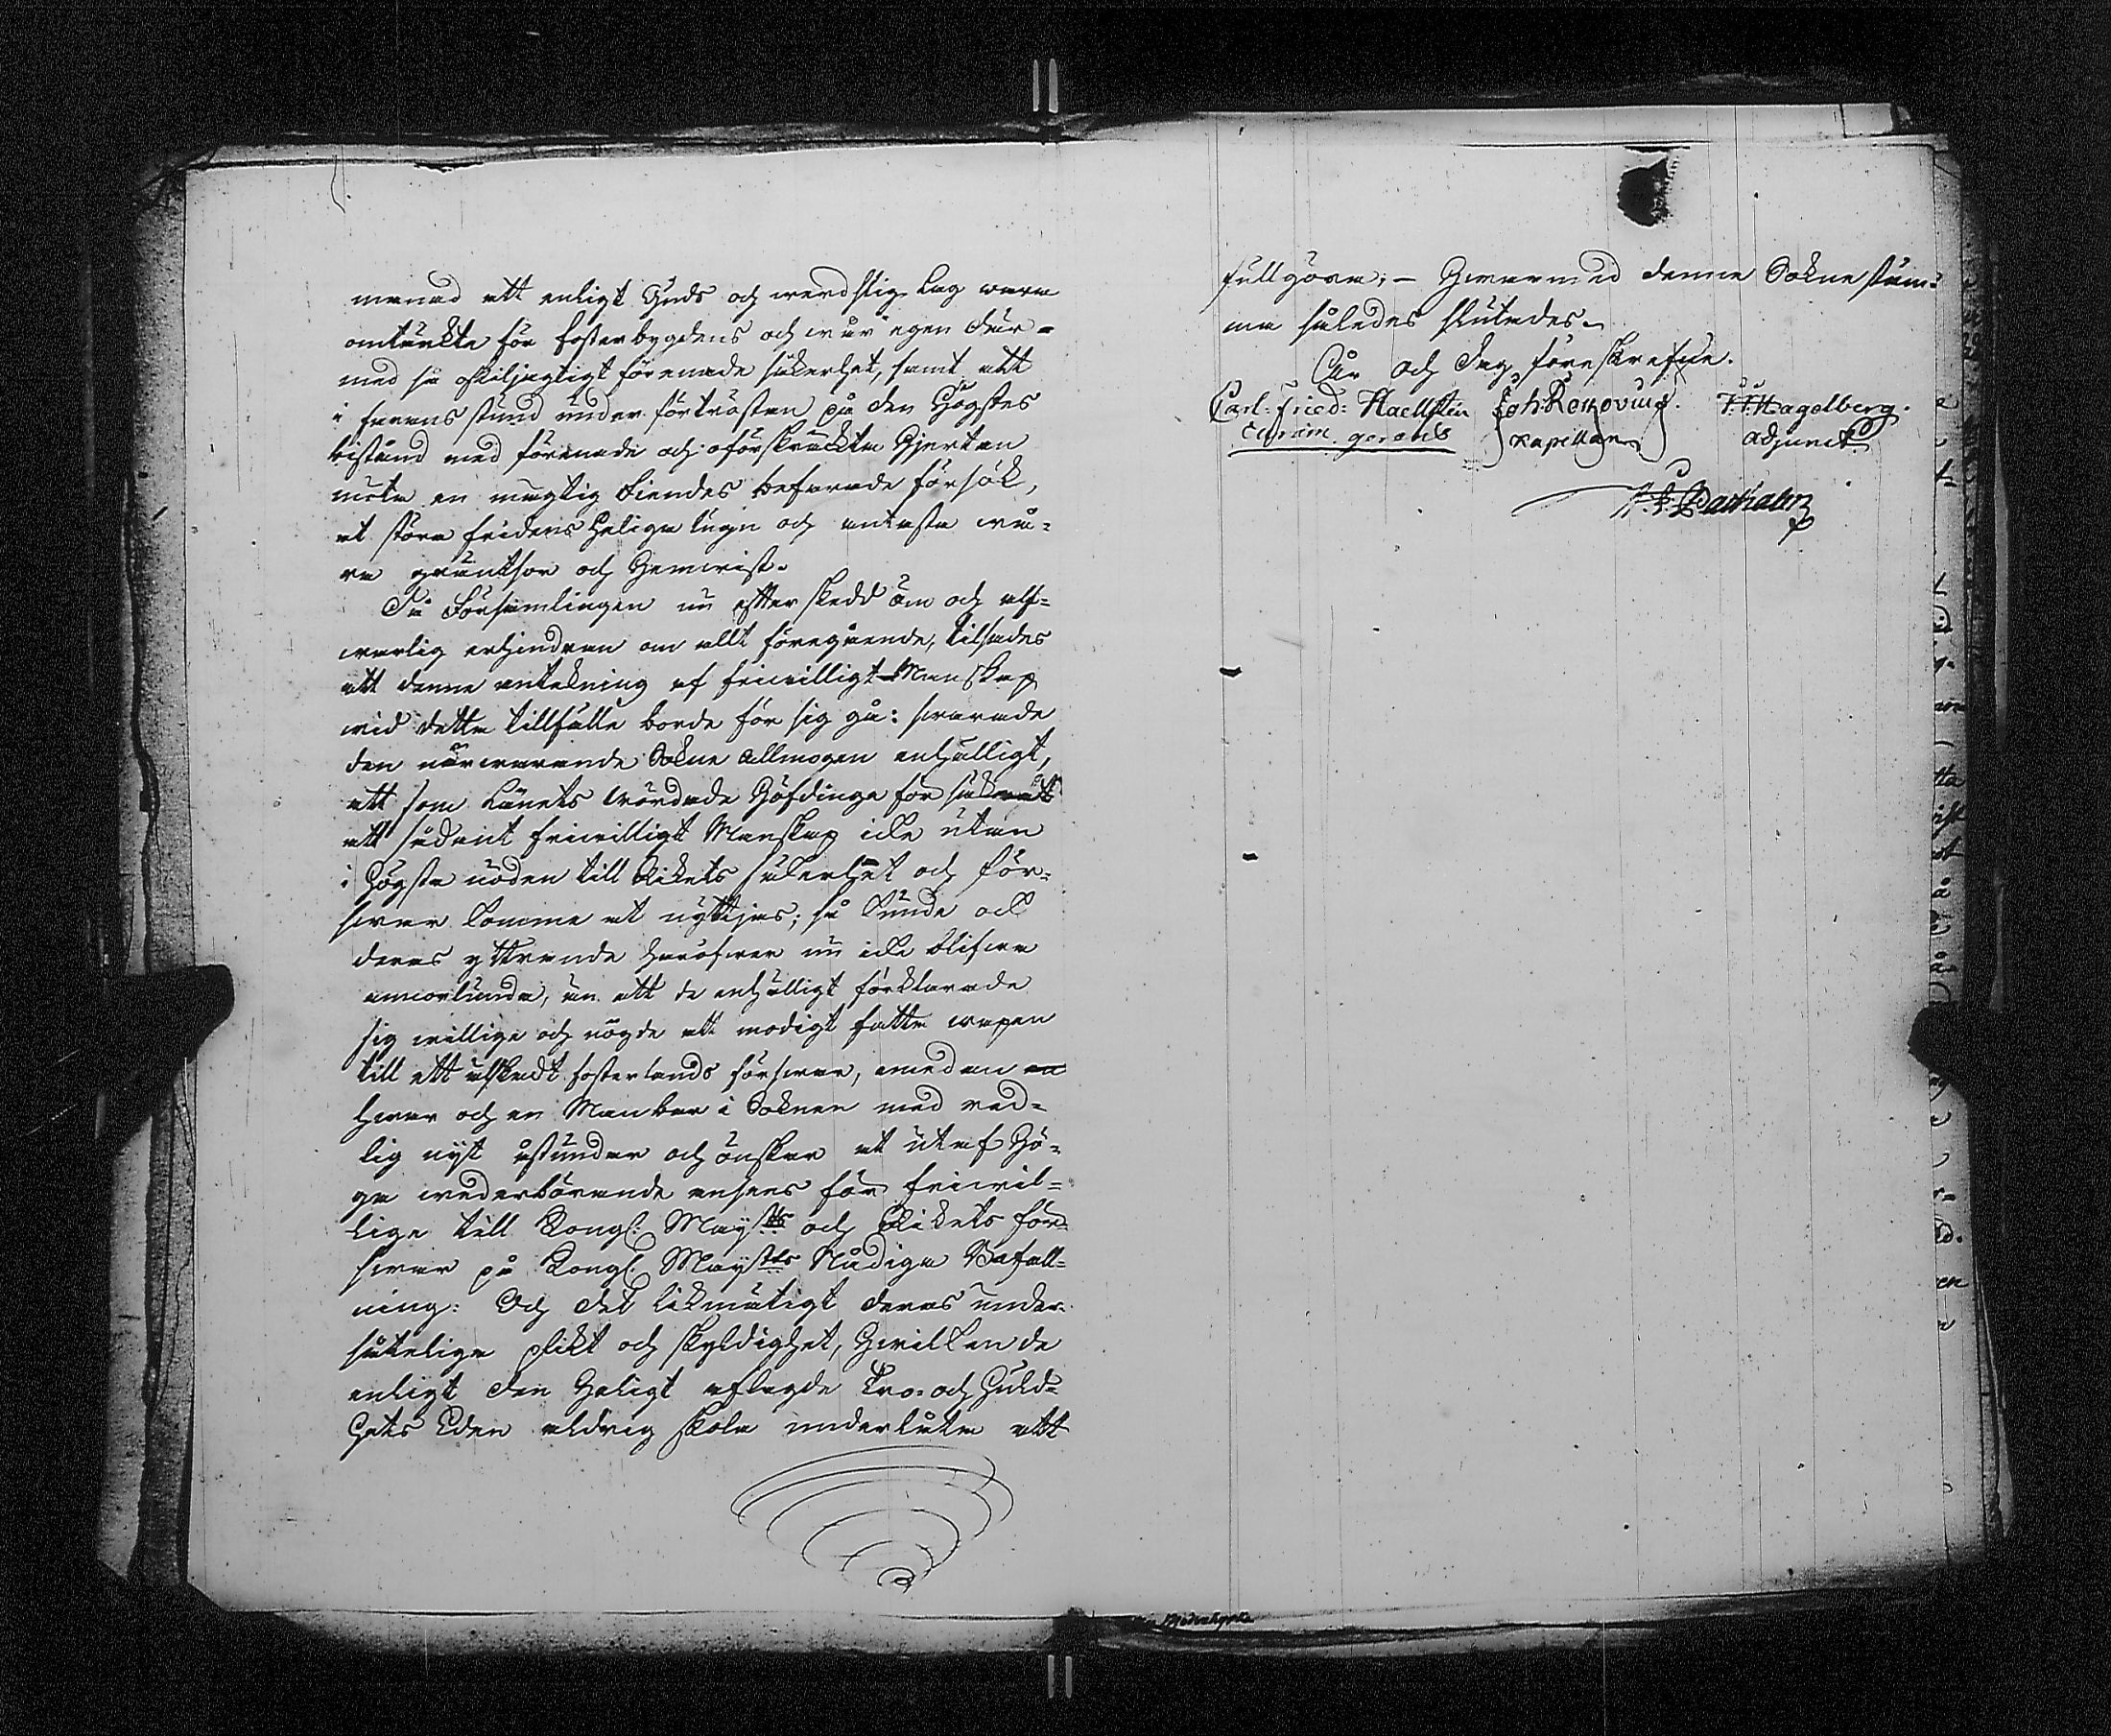 menad att enligt Guds och werdslig Lag wara
omtänkte för fosterbygdens och wår egen där-
med så oskiljagtigt förenade säkerhet, samt att
i farans stund under förtröstan på den Högstes
bistånd med förenade och oförskräckta Hjertan
möta en mägtig fiendes befarade försök,
at störa fridens heliga lugn och antasta wå-
ra gräntsor och Hemwist.
Då Församlingen nu efter skedd öm och alf-
warlig erhindran om allt föregående, tilsades
att denne antekning af friwilligt Manskap
wid detta tillfälle borde för sig gå: swarade
den närwarande Sokne Allmogen enhälligt,
att som Länets wördade Höfdinge försäkrat
att sådant friwilligt Manskap icke utan
i högsta nöden till Rikets säkerhet och för-
swar komme at nyttjas; så kunde ock
deras yttrande häröfwer nu icke blifwa
annorlunda, än att de enhälligt förklarade
sig willige och nögde att modigt fatta wapen
till ett älskadt fosterlands förswar, emedan
hwar och en Manbar i Soknen med red-
lig nijt åstundar och önskar at utaf Hö-
ga wederbörande anses för friwil-
lige till Kongl: Maij:ts och Rikets för-
swar på Kongl: Maij:ts Nådiga Befall-
ning: Och det likmätigt deras under-
såtelige plikt och skyldighet, Hwilken de
enligt den heligt aflagde Tro- och Huld-
hets Eden aldrig skola underlåta att
fullgöra; - Hwarmed denne Sokne stäm-
ma således slutades.
År och dag föreskrefne.
Carl: Fried: Haellsten Joh: Kapellan J.J. Hagelberg.
curam gerens adjunct